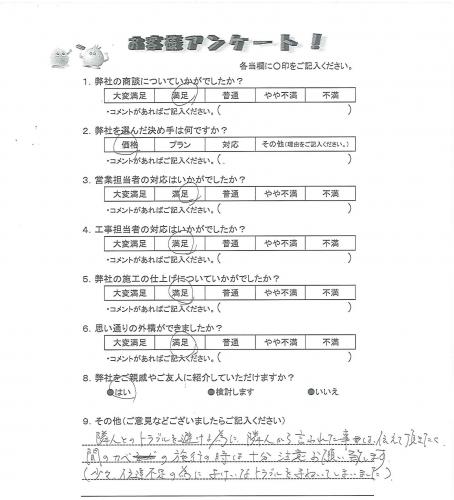 お客様アンケート!
各当欄に〇印をご記入ください。
1. 弊社の商談についていかがでしたか?
大変満足 満足 普通 やや不満 不満
・コメントがあればご記入ください。( )
2. 弊社を選んだ決め手は何ですか?
価格 プラン 対応 その他(理由をご記入ください。)
・コメントがあればご記入ください。( )
3. 営業担当者の対応はいかがでしたか?
大変満足 満足 普通 やや不満 不満
・コメントがあればご記入ください。( )
4. 工事担当者の対応はいかがでしたか?
大変満足 満足 普通 やや不満 不満
・コメントがあればご記入ください。( )
5. 弊社の施工の仕上げについていかがでしたか?
大変満足 満足 普通 やや不満 不満
・コメントがあればご記入ください。( )
6. 思い通りの外構ができましたか?
大変満足 満足 普通 やや不満 不満
・コメントがあればご記入ください。( )
8. 弊社をご親戚やご友人に紹介していただけますか?
●はい ●検討します ●いいえ
9. その他(ご意見などございましたらご記入ください)
隣人とのトラブルを避ける為に、隣人から言われた事は、伝えて頂きたく
間のカベの施行の時は十分注意お願い致します
(少々、伝達不足の為に よけいなトラブルをまねいてしまいました)